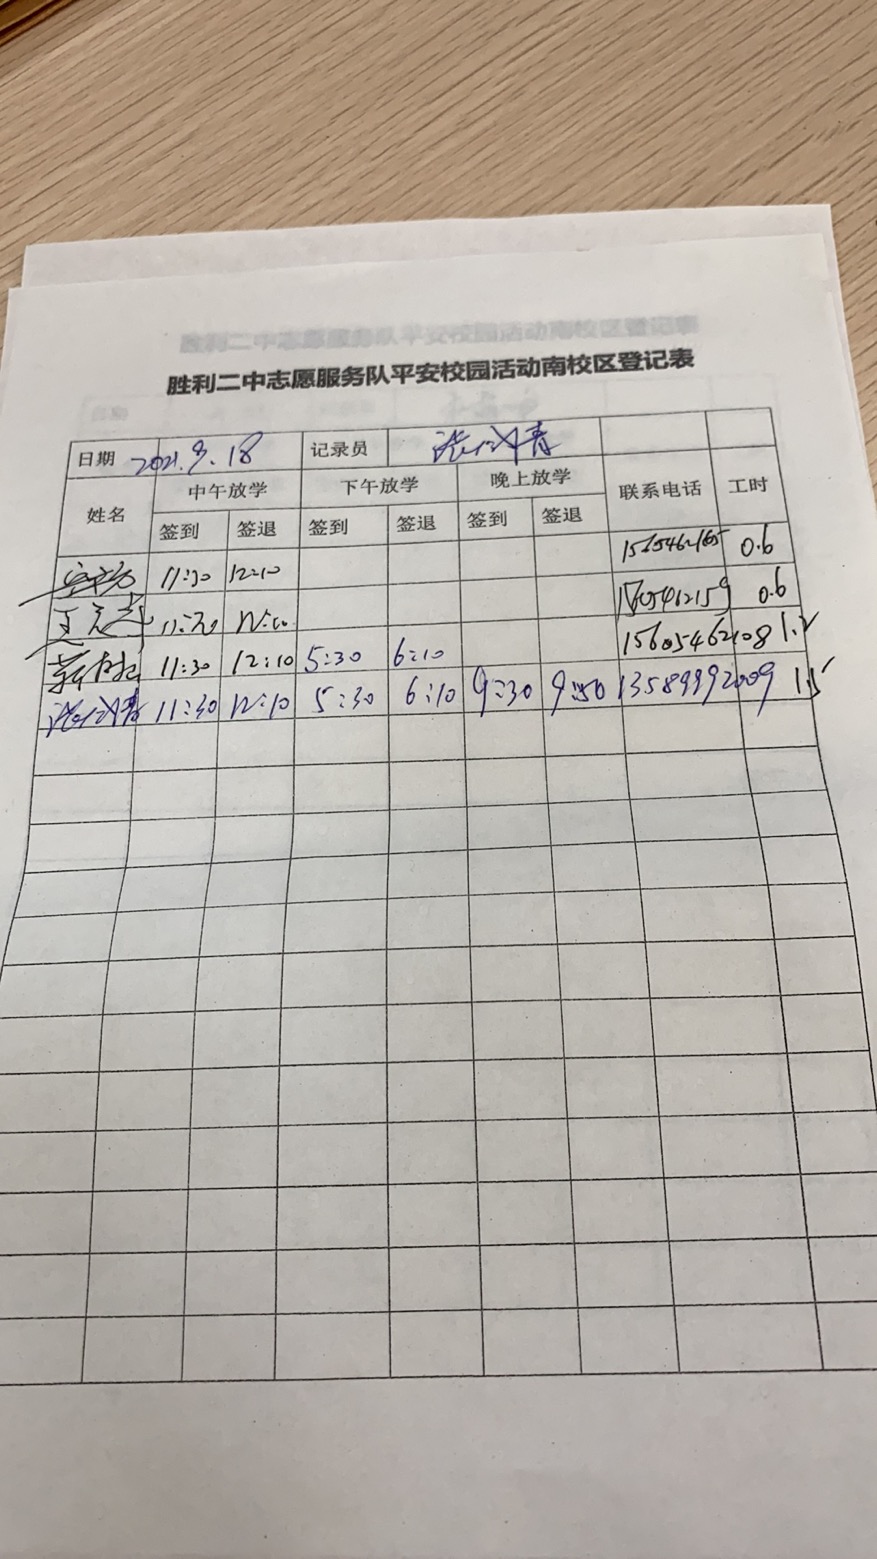 胜利二中志愿服务队平安校园活动南校区登记表
日期 2021.9.18 记录员
姓名 中午放学 下午放学 晚上放学 联系电话 工时
签到 签退 签到 签退 签到 签退
11:30 12:10 0.6
0.6
11:30 12:10 5:30 6:10 15605462108 1.2
11:30 12:10 5:30 6:10 9:30 9:50 13589992009 1.5